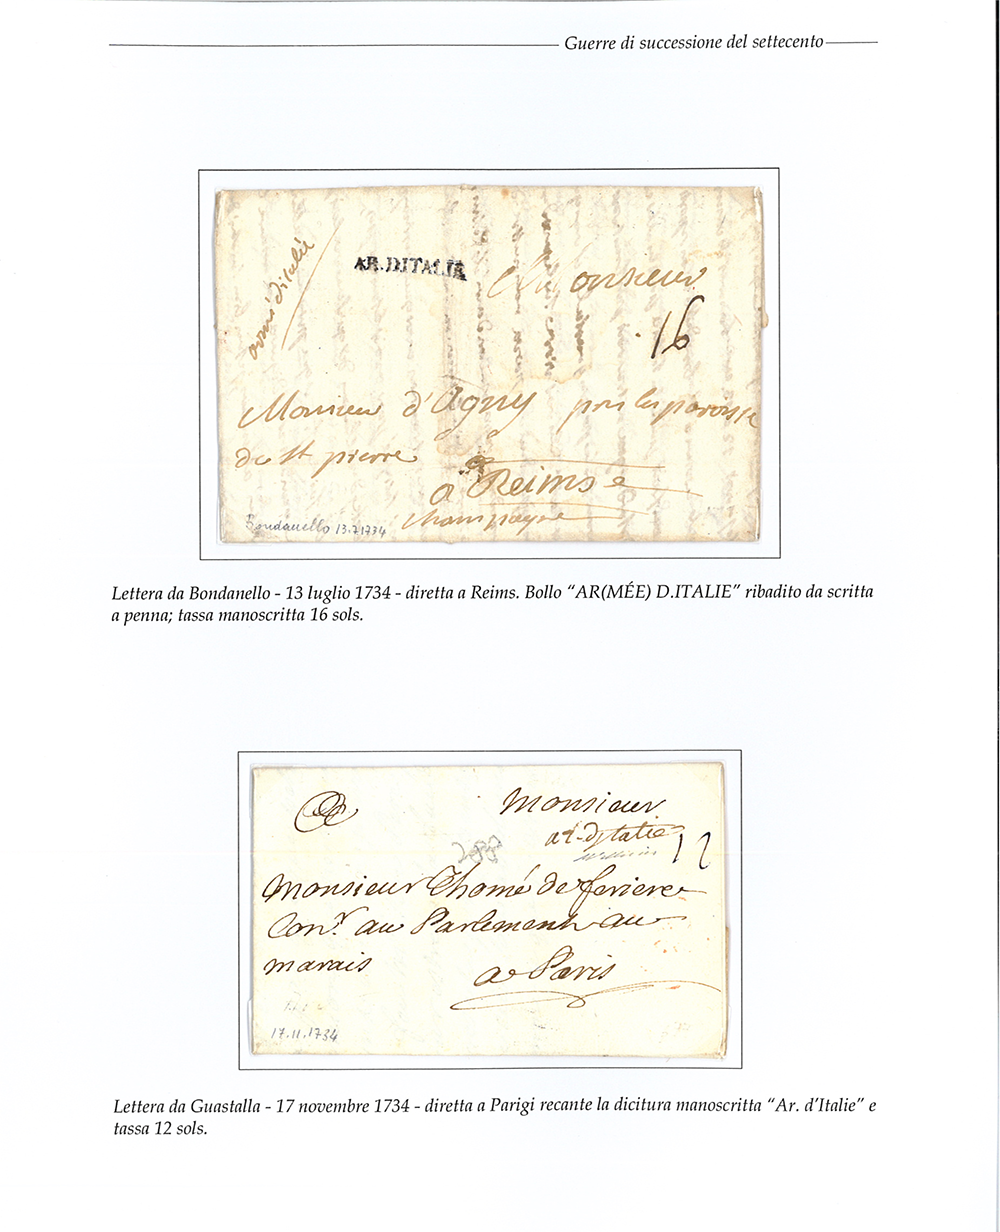 Guerre di successione del settecento
armé ditalie
AR.DITALIE
Monsieur
16
Monsieur d'Agny pres la paroisse
de st pierre
a Reims
champagne
Bondanello 13.7.1734
Lettera da Bondanello - 13 luglio 1734 - diretta a Reims. Bollo “AR(MÉE) D.ITALIE” ribadito da scritta
a penna; tassa manoscritta 16 sols.
Monsieur
ar. Ditalie
12
288
Monsieur Thomé de feriere
Conr. au Parlement au
marais
a Paris
17.11.1734
Lettera da Guastalla - 17 novembre 1734 - diretta a Parigi recante la dicitura manoscritta “Ar. d’Italie” e
tassa 12 sols.